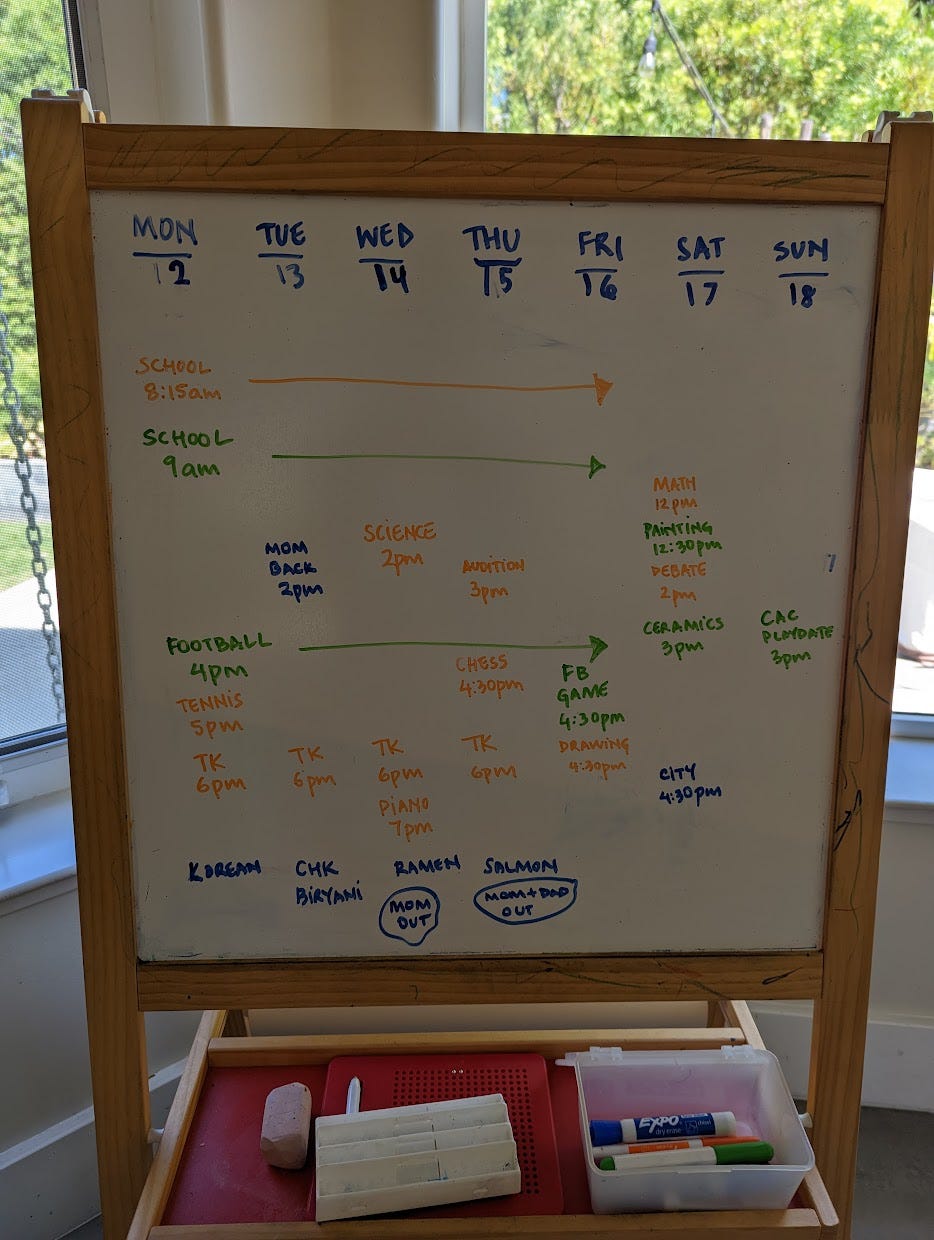 MON TUE WED THU FRI SAT SUN
12 13 14 15 16 17 18
SCHOOL
8:15am
SCHOOL
9am
MATH
12pm
PAINTING
12:30pm
SCIENCE
2pm
MOM
BACK
2pm
AUDITION
3pm
DEBATE
2pm
CERAMICS
3pm
CAC
PLAYDATE
3pm
FOOTBALL
4pm
CHESS
4:30pm
FB
GAME
4:30pm
TENNIS
5pm
DRAWING
4:30pm
TK TK TK TK
6pm 6pm 6pm 6pm
CITY
4:30pm
PIANO
7pm
KOREAN CHK RAMEN SALMON
BIRYANI
MOM
OUT
MOM+DAD
OUT
EXPO
dry erase